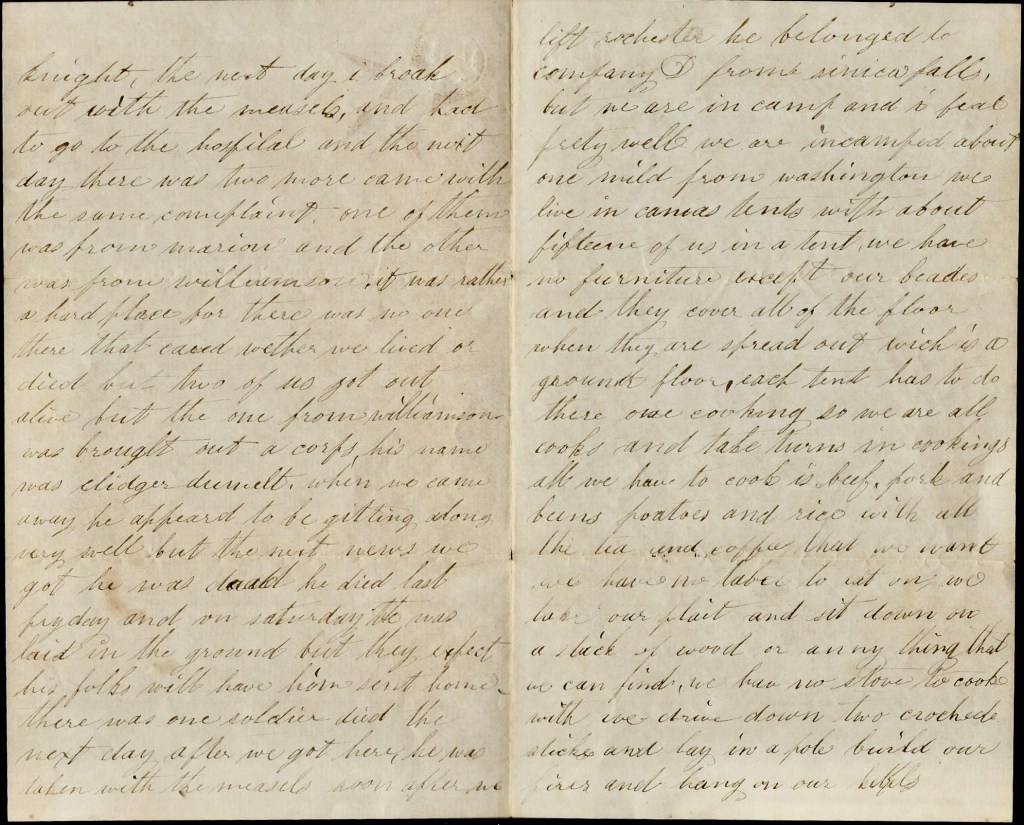 knight, the next day i broak
out with the measels, and had
to go to the hospilal and the next
day there was two more came with
the same complaint. one of them
was from marion and the other
was from williamson. it was rather
a hard place for there was no one
there that caced wether we lived or
died but two of us got out
alive but the one from williamson
was brought out a corps, his name
was elidger
when we came
away he appeard to be gitting along
very well but the next news we
got he was he died last
fryday and on saturday he was
laid in the ground but they expect
his folks will have him sent home.
there was one soldier died the
next day after we got here, he was
taken with the measels soon after we
lift rochester he belonged to
company D from sinica falls,
but we are in camp and i feal
prety well we are incamped about
one mild from washington we
live in canvas tents with about
fifteene of us in a tent, we have
no furniture except our beades
and they cover all of the floor
when they are spread out wich is a
ground floor, each tent has to do
there owe cooking so we are all
cooks and take turns in cookings
all we have to cook is beef, pork and
beens potatoes and rice with all
the tea and coffee that we want
we have no tabel to eat on, we
take our plait and sit down on
a stick of wood or anny thing that
we can find, we hav no stove to cook
with we drive down two croched
sticks and lay in a pole build our
fires and hang on our kittels